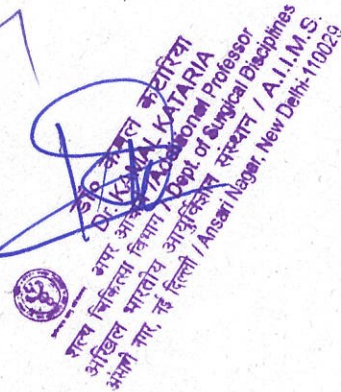 डॉ० कमल कटारिया
Dr. KAMAL KATARIA
अपर आचार्य / Additional Professor
शल्य चिकित्सा विभाग / Dept. of Surgical Disciplines
अखिल भारतीय आयुर्विज्ञान संस्थान / A.I.I.M.S.
अंसारी नगर, नई दिल्ली / Ansari Nagar, New Delhi-110029